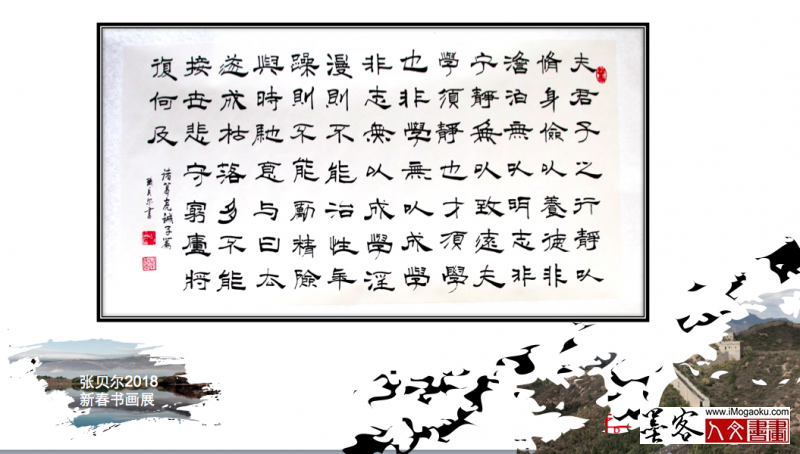 夫君子之行靜以
脩身儉以養德非
澹泊無以明志非
宁靜無以致遠夫
學須靜也才須學
也非學無以成學
非志無以成學淫
漫則不能冶性年
躁則不能勵精險
與時馳意与日太
遂成枯落多不能
接世悲守窮廬將
復何及
諸葛亮誡子篇
張貝尔書
张贝尔2018
新春书画展
墨客
www.iMogaoku.com
人文書畫